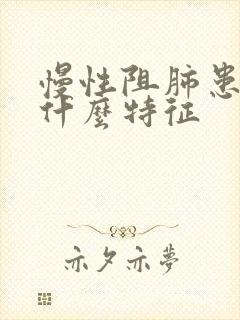 慢性阻肺患
什麼特征
亦夕亦夢